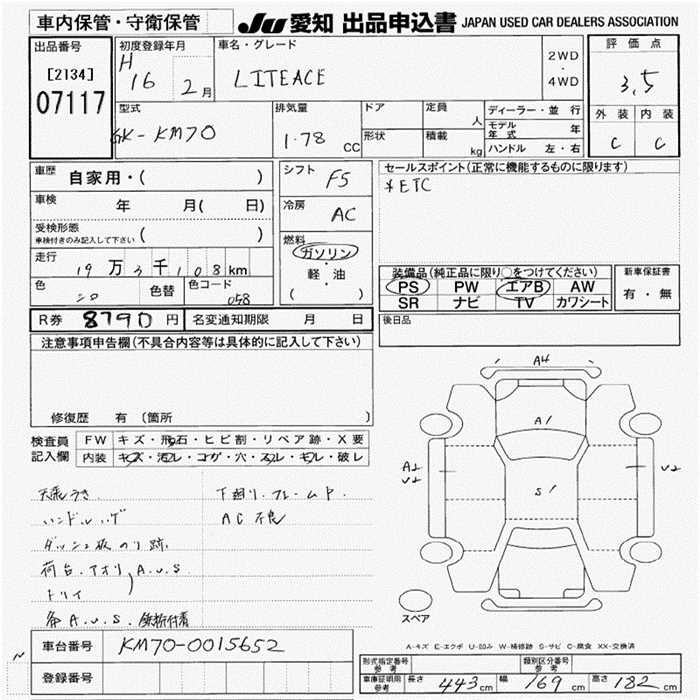 車内保管・守衛保管
JU 愛知 出品申込書 JAPAN USED CAR DEALERS ASSOCIATION
出品番号
[2134]
07117
初度登録年月
H 16 2月
車名・グレード
LITEACE
2WD
・
4WD
評価点
3.5
外装 内装
C C
型式
GK-KM70
排気量
1.78 CC
ドア
形状
定員
人
積載
kg
ディーラー・並行
モデル年式 年
ハンドル 左・右
車歴
自家用・( )
車検
年 月( 日)
受検形態
車検付きのみ記入して下さい ( )
走行
19万3千108km
色
シロ
色替
色コード
058
シフト
F5
冷房
AC
燃料
ガソリン
・
軽・油
( )
セールスポイント(正常に機能するものに限ります)
*ETC
装備品(純正品に限り○をつけてください)
PS PW エアB AW
SR ナビ TV カワシート
新車保証書
有・無
R券 8790円
名変通知期限 月 日
後日品
注意事項申告欄(不具合内容等は具体的に記入して下さい)
修復歴 有 (箇所
検査員
記入欄
FW キズ・飛石・ヒビ割・リペア跡・X要
内装 キズ・汚レ・コゲ・穴・スレ・キレ・破レ
下廻り・フレームP.
ハンドル
AC不良
ダッシュ板のり跡
荷台.アオリ
A.U.S
トリイ
A.U.S.
A4
A1
A2
U2
S1
U2
スペア
A-キズ E-エクボ U-凹み W-補修跡 S-サビ C-腐食 XX-交換済
車台番号
KM70-0015652
登録番号
形式指定番号
参考
類別区分番号
参考
車庫証明用
参考
長さ 443cm
幅 169cm
高さ 182cm